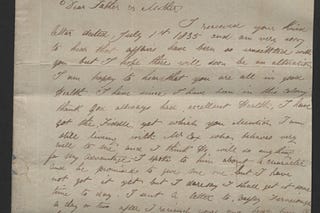 Dear Father & Mother
I received your kind
letter dated July 1st 1835 and am very sorry
to hear that affairs have been so unsettled with
you but I hope there will soon be an alteration
I am happy to hear that you are all in good
Health I have since I have been in this colony
thank God always had excellent Health, I have
got the Fiddle yet which you mention I am
still living with Mr Cox who behaves very
well to me and I think He will do anything
for my advantage I spoke to him about a
and he promised to give me one but I have
not got it yet but I daresay I shall get it some
time to day. I sent a letter to
a day or two after I received